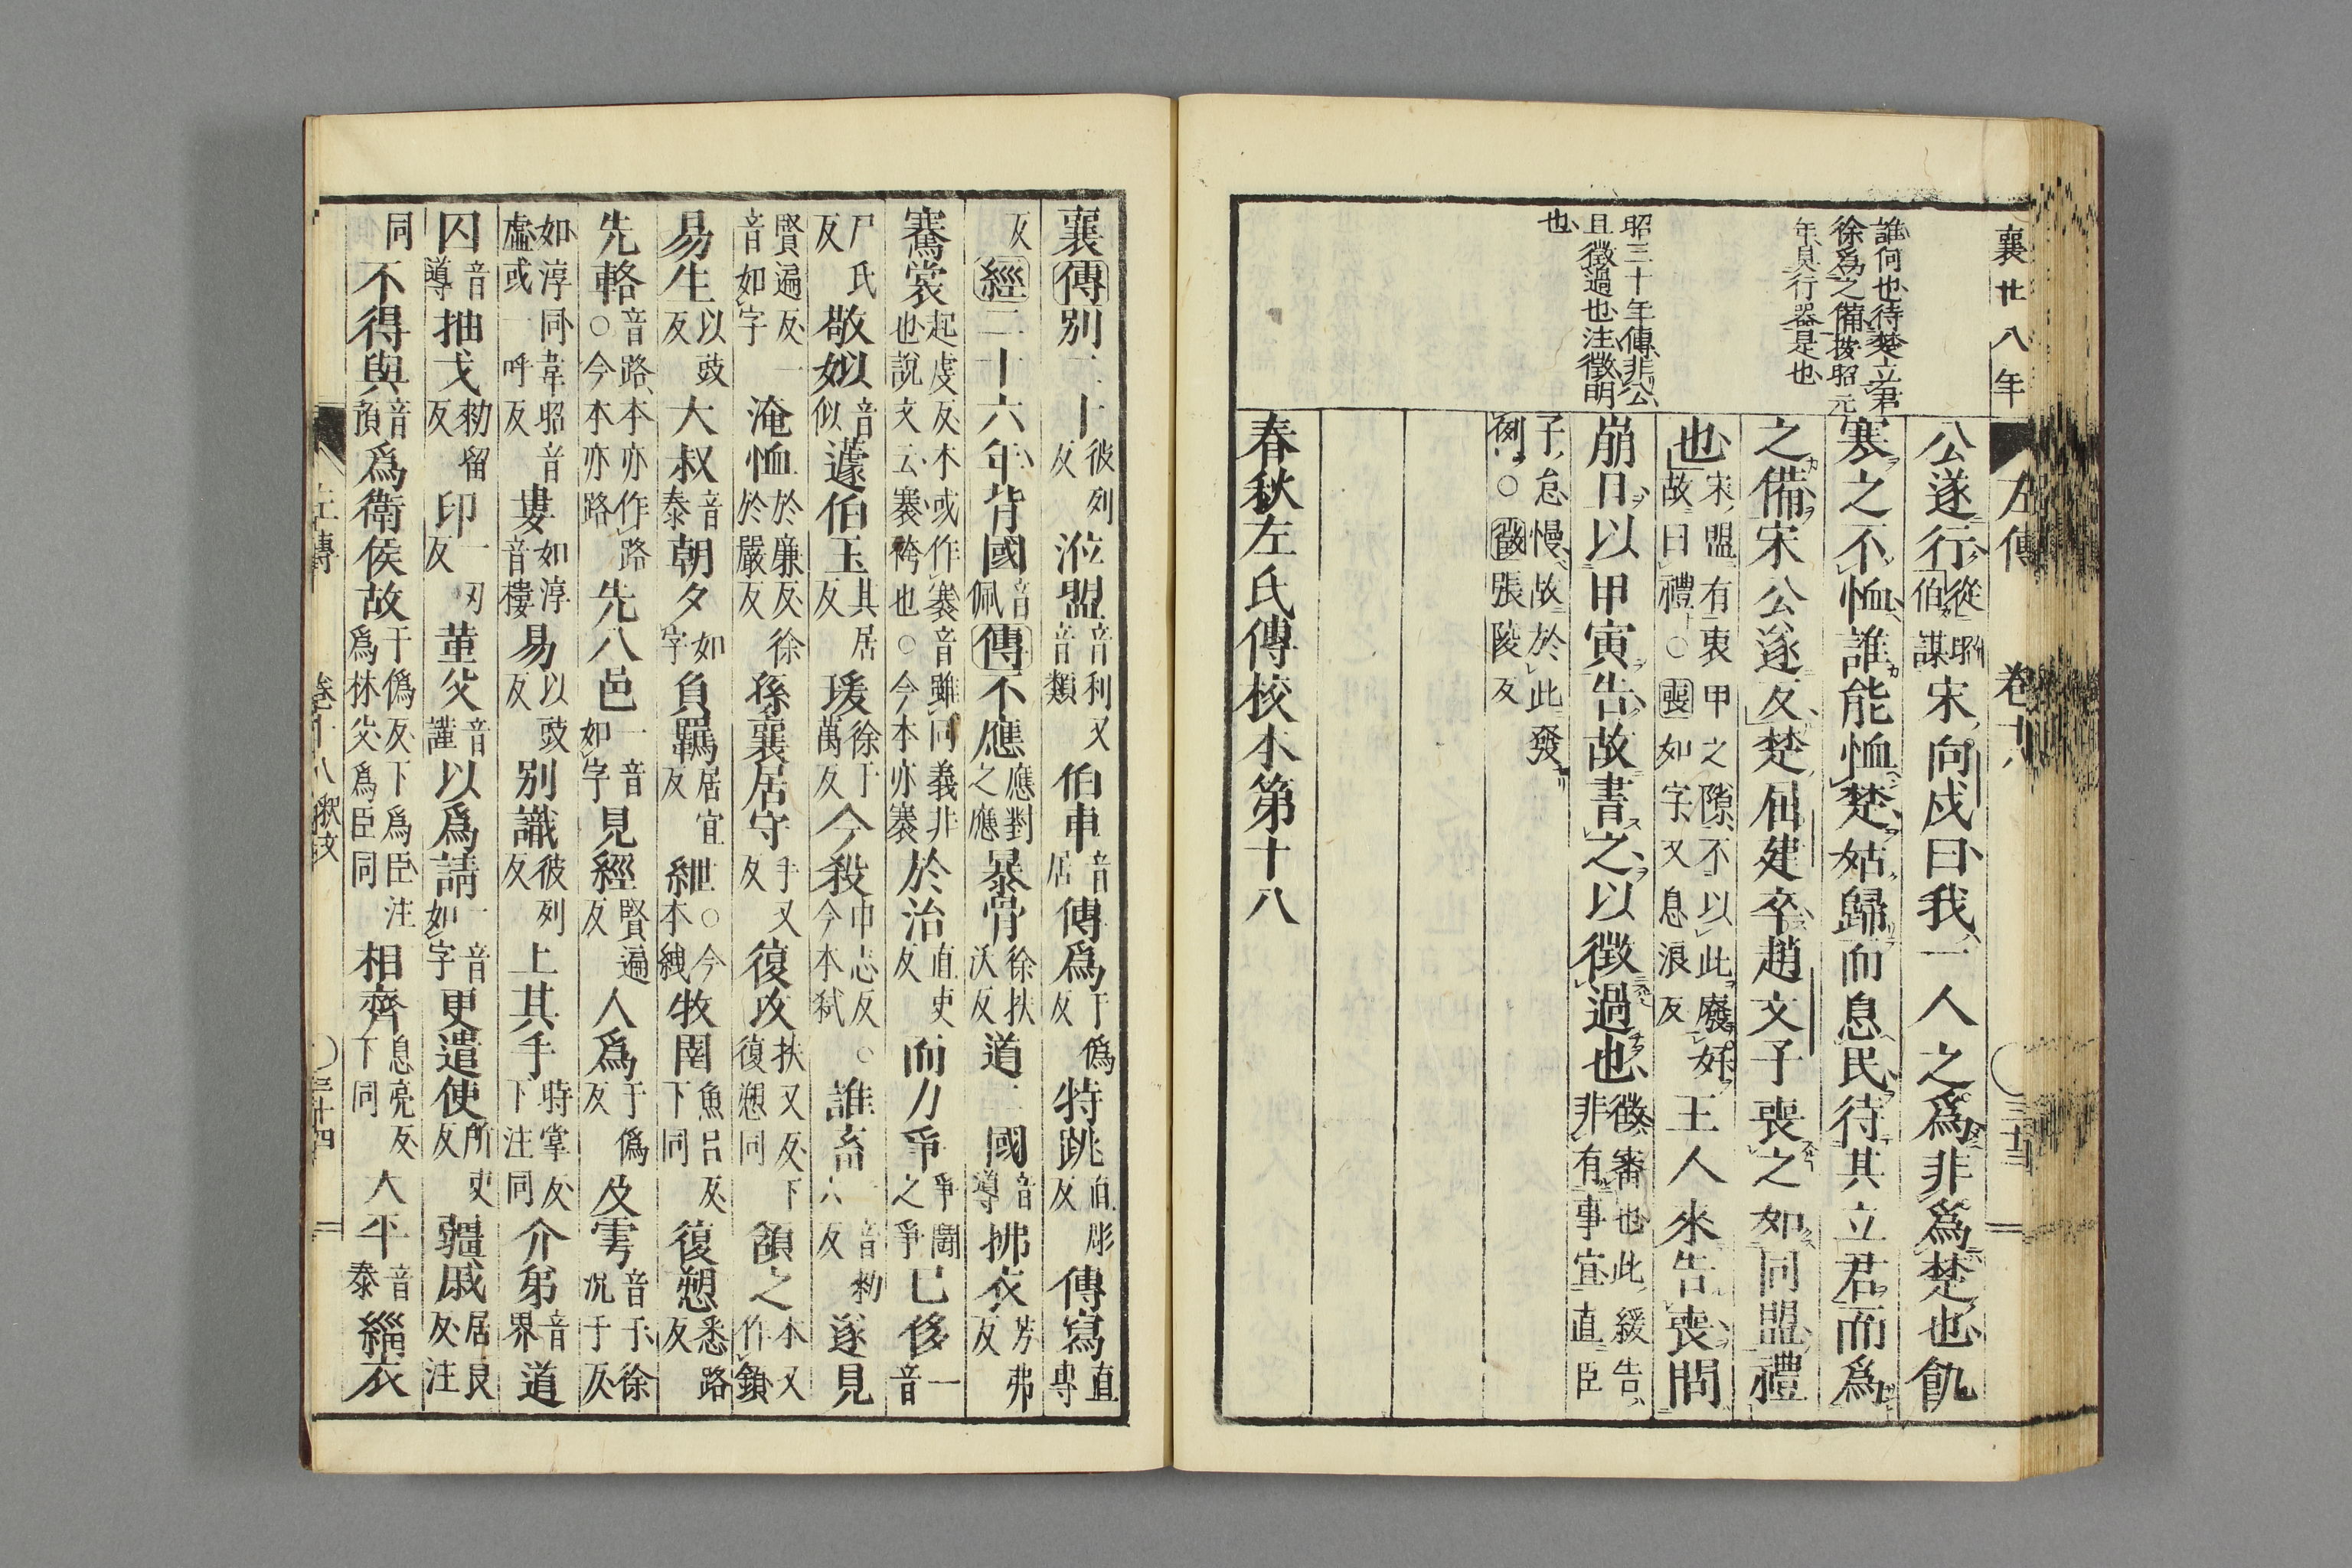 襄廿八年
左傳　卷十八　三十三
誰何也待楚立君
徐爲之備按昭元
年具行器是也
昭三十年傳非公
且徵過也注徵明
也
公遂行從昭伯謀宋向戌曰我一人之爲非爲楚也飢
寒之不恤誰能恤楚姑歸而息民待其立君而爲
之備宋公遂反楚屈建卒趙文子喪之如同盟禮
也宋盟有衷甲之隙不以此廢好故曰禮○喪如字又息浪反王人來告喪問
崩日以甲寅告故書之以徵過也徵審也此緩告非有事宜直臣
子怠慢故於此發例○徵張陵反
春秋左氏傳校本第十八
襄傳別二十彼列反涖盟音利又音類伯車音居傳爲于僞反特跳直彫反傳寫直專
反經二十六年背國音佩傳不應應對之應暴骨徐扶沃反道二國音導拂衣芳弗反
騫裳起虔反本或作褰音雖同義非也說文云褰袴也○今本亦褰於治直吏反而力爭爭鬭之爭已侈一音
尸氏反敬姒音似蘧伯玉其居反瑗徐于萬反今殺申志反○今本弑誰畜一音勑六反遂見
賢遍反一音如字淹恤於廉反徐於嚴反孫襄居守手又反復攻扶又反下復愬同頷之本又作鎖
易生以豉反大叔音泰朝夕如字負羈居宜反紲世○今本絏牧圉魚呂反下同復愬悉路反
先輅音路本亦作路○今本亦路先八邑一音如字見經賢遍反人爲于僞反及雩音于徐況于反
如淳同韋昭音虛或一呼反婁如淳音樓易以豉反別識彼列反上其手時掌反下注同介弟音界道
囚音導抽戈勑留反印一刃反堇父音謹以爲請一音如字更遣使所吏反疆戚居良反注
同不得與音預爲衛侯故于僞反下爲臣注爲林父爲臣同相齊息亮反下同大平音泰緇衣
左傳　卷十八釈文　三十四